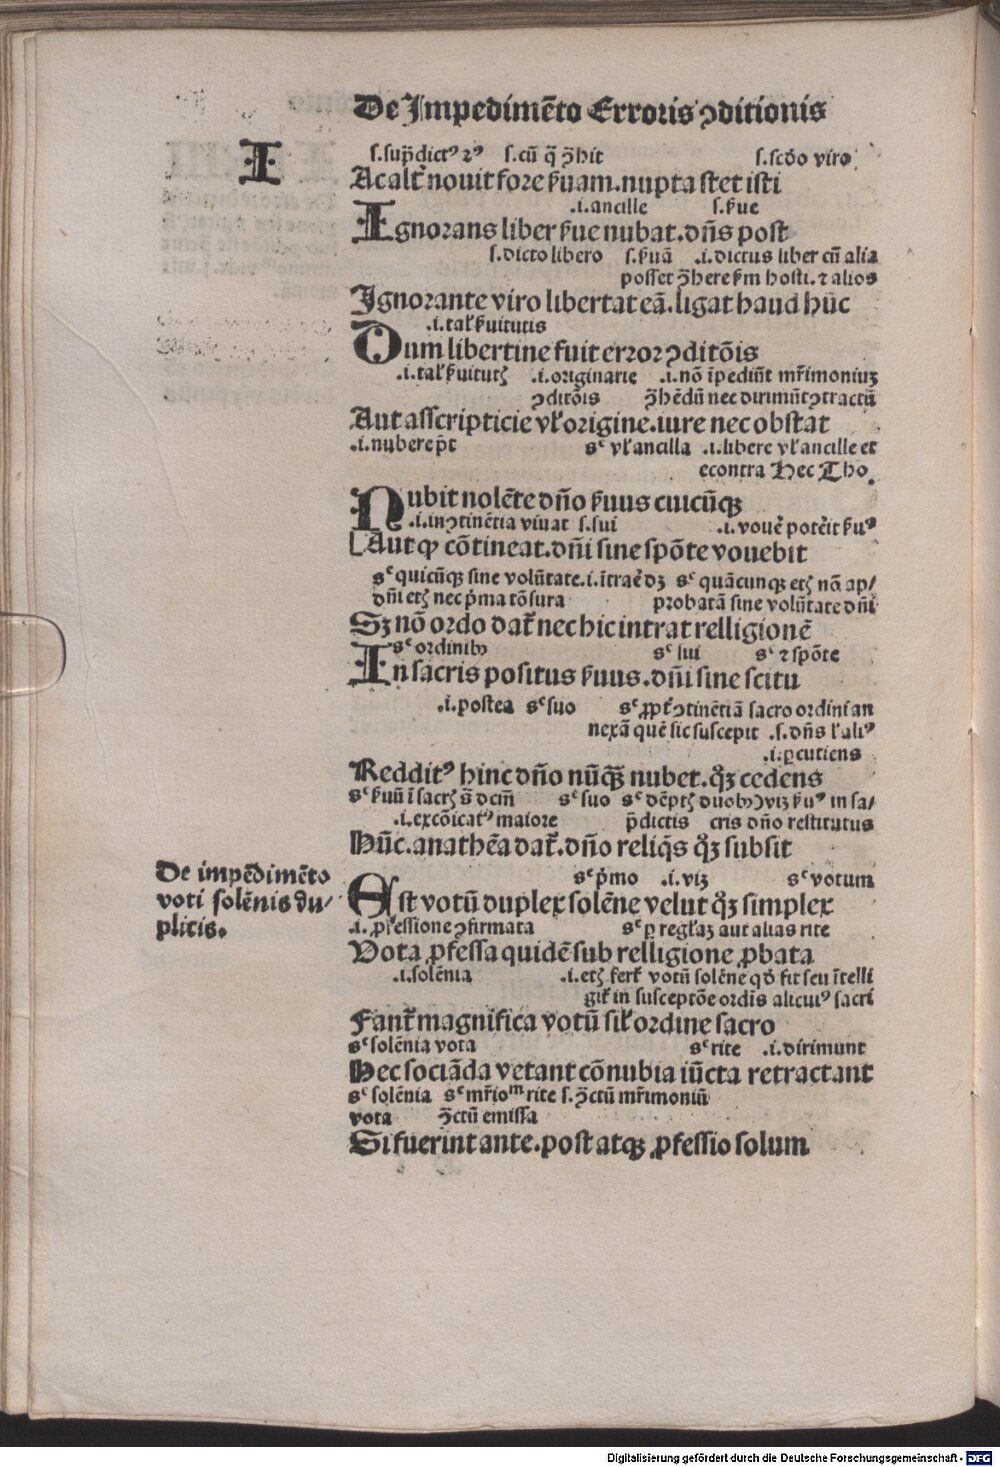 De Impedimēto Erroris ꝯditionis
I
s.sup̄dictꝰ ⁊ꝰ s.cū q̄ ꝯ̄hit s.scďo viro
Ac alt̄ novit fore ẜuam.nupta stet isti
.i.ancille s.ẜue
Ignorans liber ẜue nubat.dn̄s post
s.dicto libero s.ẜuā .i.dictus liber cū alia
posset ꝯ̄here ẜm hosti.⁊ alios
Ignorante viro libertat eā.ligat haud hūc
.i.tal̕ ẜuitutis
Cum libertine fuit error ꝯditōis
.i.tal̕ ẜuitutꝭ .i.originarie .i.nō īpediūt mr̄imoniuꝫ
ꝯditōis ꝯ̄hēdū nec dirimūt ꝯtractū
Aut asscripticie vl̕ origine.iure nec obstat
.i.nubere p̄t sᶜ vl̕ ancilla .i.libere vl̕ ancille et
econtra Hec Tho.
Nubit nolēte dn̄o ẜuus cuicūqꝫ
.i.inꝯtinētia vivat s.sui .i.vovē potēit ẜuꝰ
Aut qꝫ cōtineat.dn̄i sine spōte vovebit
sᶜ quicūqꝫ sine volūtate.i.ītraē dꝫ sᶜ quācunqꝫ etꝭ nō ap/
dn̄i etꝭ nec p̄ma tōsura probatā sine volūtate dn̄i
Sꝫ nō ordo dat̄ nec hic intrat relligionē
sᶜ ordinibꝰ sᶜ sui sᶜ ⁊ spōte
In sacris positus ẜuus.dn̄i sine scitu
.i.postea sᶜ suo sᶜ ꝓpt̄ ꝯtinētiā sacro ordini an
nexā quē sic suscepit .s.dn̄s l̕ aliꝰ
.i.ꝑcutiens
Redditꝰ hinc dn̄o nūqꝫ̄ nubet.qꝫ̊ cedens
sᶜ ẜuū ī sacrꝭ s̄ dcm̄ sᶜ suo sᶜ dēptꝭ duobꝰ viz ẜuꝰ in sa/
.i.excōicatꝰ maiore p̄dictis cris dn̄o restitutus
Hūc.anathēa dat̄.dn̄o reliq̄s qꝫ̊ subsit
De impēdimēto
voti solēnis du/
plicis.
sᶜ p̄mo .i.viꝫ sᶜ votum
Est votū duplex solēne velut qꝫ̊ simplex
.i.ꝓfessione ꝯfirmata sᶜ ꝑ regl̕aꝫ aut alias rite
Vota ꝓfessa quidē sub relligione ꝓbata
.i.solēnia .i.etꝭ fert̄ votū solēne qď fit seu ītelli
git̄ in susceptōe ordīs alicuiꝰ sacri
Fant̄ magnifica votū sil̕ ordine sacro
sᶜ solēnia vota sᶜ rite .i.dirimunt
Hec sociāda vetant cōnubia iūcta retractant
sᶜ solēnia sᶜ mr̄ioᵐ rite s.ꝯ̄ctū mr̄imoniū
vota ꝯ̄ctū emissa
Si fuerint ante.post atqꝫ ꝓfessio solum
Digitalisierung gefördert durch die Deutsche Forschungsgemeinschaft - DFG